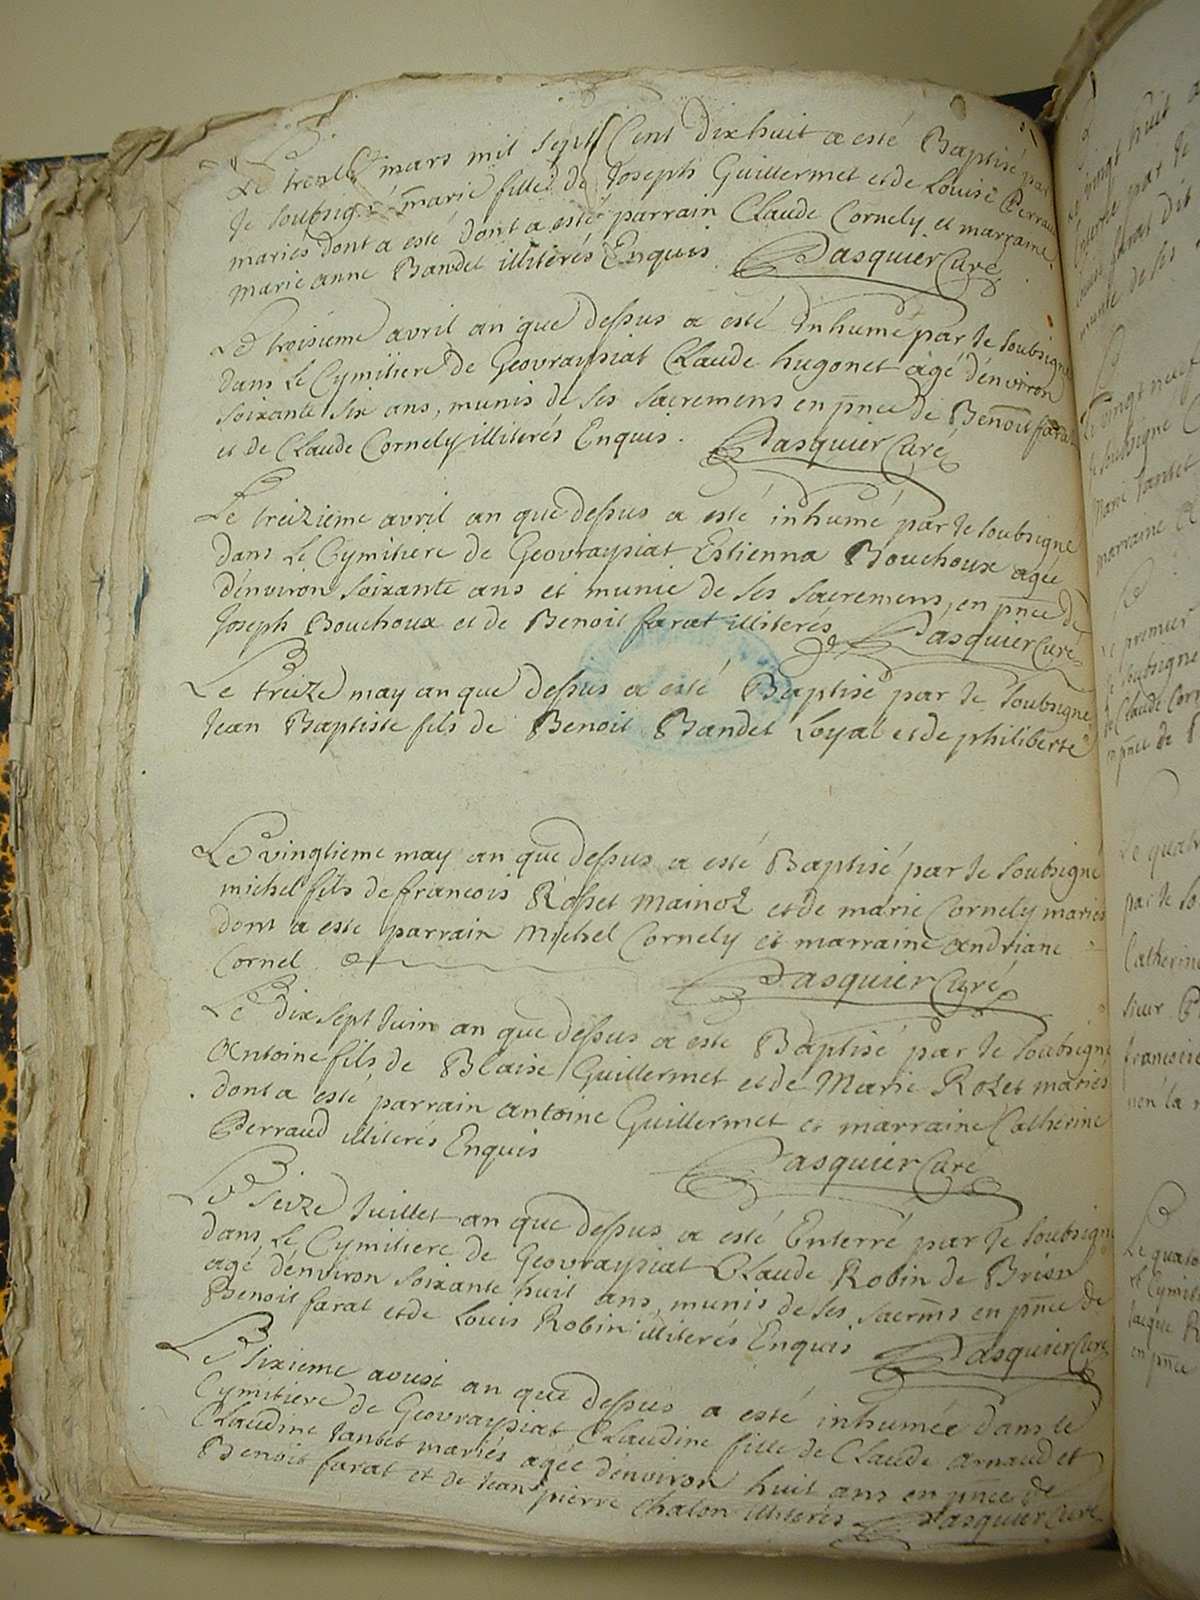 Le trente mars mil sept Cent dix huit a esté Baptisé par
Je soubsigné marie fille de Joseph Guillermet et de Louise Perraud
mariés dont a esté dont a esté parrain Claude Cornely et marraine
marie anne Bandet illiterés Enquis. Pasquier Curé
Le troisieme avril an que dessus a esté Inhumé par Je soubsigné
dans Le Cymitiere de Geovraysiat Claude hugonet agé d'environ
soixante six ans, munis de ses sacremens en pnce de Benoit farat
et de Claude Cornely illiterés Enquis. Pasquier Curé
Le treizieme avril an que dessus a esté inhumé par Je soubsigné
dans Le Cymitiere de Geovraysiat Estienna Bouchoux agée
d'environ soixante ans et munie de ses sacremens, en pnce de
Joseph Bouchoux et de Benoit farat illiterés Pasquier Curé
Le treize may an que dessus a esté Baptisé par Je soubsigné
Jean Baptiste fils de Benoit Bandet Loyal et de philiberte
Le vingtieme may an que dessus a esté Baptisé par Je soubsigné
michel fils de francois Rosset mainot et de marie Cornely mariés
dont a esté parrain Michel Cornely et marraine andriane
Cornel Pasquier Curé
Le dix sept Juin an que dessus a esté Baptisé par Je soubsigné
Antoine fils de Blaise Guillermet et de Marie Rozet mariés
dont a esté parrain antoine Guillermet et marraine Catherine
Perraud illiterés Enquis Pasquier Curé
Le seize Juillet an que dessus a esté Enterré par Je soubsigné
dans Le Cymitiere de Geovraysiat Claude Robin de Brion
agé d'environ soixante huit ans, munis de ses sacrms en pnce de
Benoit farat et de Louis Robin illiterés Enquis Pasquier Curé
Le sixieme aoust an que dessus a esté inhumée dans le
Cymitiere de Geovraysiat Claudine fille de Claude arnaud et
Claudine Jantet mariés agée d'environ huit ans en pnce de
Benoit farat et de Jean pierre Chalon illiterés Pasquier Curé